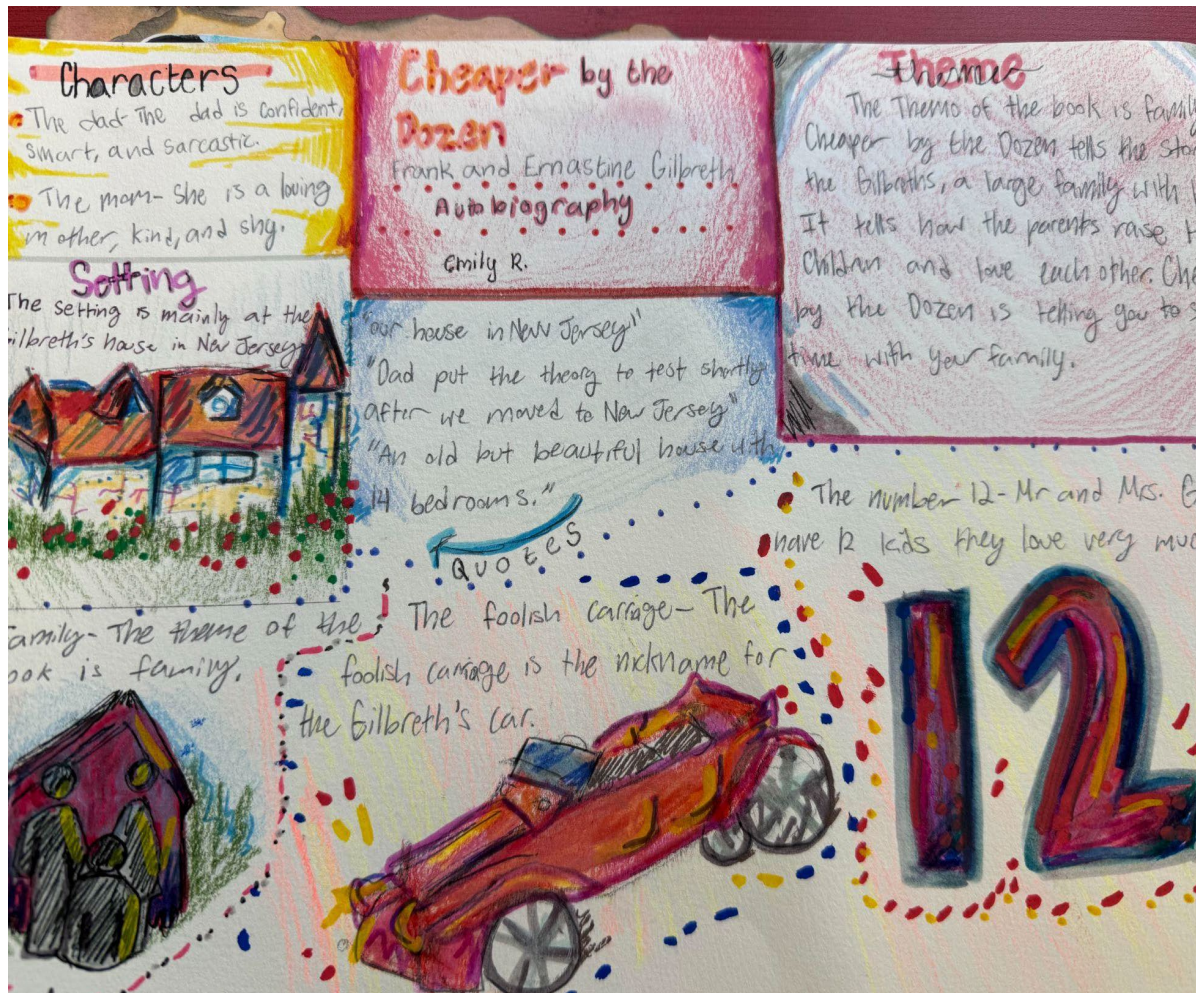 Characters
The dad- The dad is confident,
smart, and sarcastic.
The mom- She is a loving
mother, kind, and shy.
Setting
The setting is mainly at the
Gilbreth's house in New Jersey
Cheaper by the
Dozen
Frank and Ernastine Gilbreth
Autobiography
Emily R.
"our house in New Jersey"
"Dad put the theory to test shortly
after we moved to New Jersey"
"An old but beautiful house with
14 bedrooms."
QUOTES
Theme
The Theme of the book is
Cheaper by the Dozen tells the
the Gilbreths, a large family with
It tells how the parents raise
Children and love each other.
by the Dozen is telling you to
time with your family.
Family- The theme of the
book is family.
The foolish carriage- The
foolish carriage is the nickname for
the Gilbreth's car.
The number 12- Mr and Mrs.
have 12 kids they love very
12